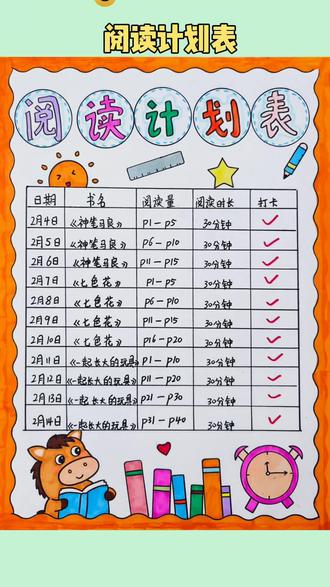 阅读计划表
阅读计划表
日期 书名 阅读量 阅读时长 打卡
2月4日 《神笔马良》 p1-p5 30分钟 ✓
2月5日 《神笔马良》 p6-p10 30分钟 ✓
2月6日 《神笔马良》 p11-p15 30分钟 ✓
2月7日 《七色花》 p1-p5 30分钟 ✓
2月8日 《七色花》 p6-p10 30分钟 ✓
2月9日 《七色花》 p11-p15 30分钟 ✓
2月10日 《七色花》 p16-p20 30分钟 ✓
2月11日 《一起长大的玩具》 p1-p10 30分钟 ✓
2月12日 《一起长大的玩具》 p11-p20 30分钟 ✓
2月13日 《一起长大的玩具》 p21-p30 30分钟 ✓
2月14日 《一起长大的玩具》 p31-p40 30分钟 ✓